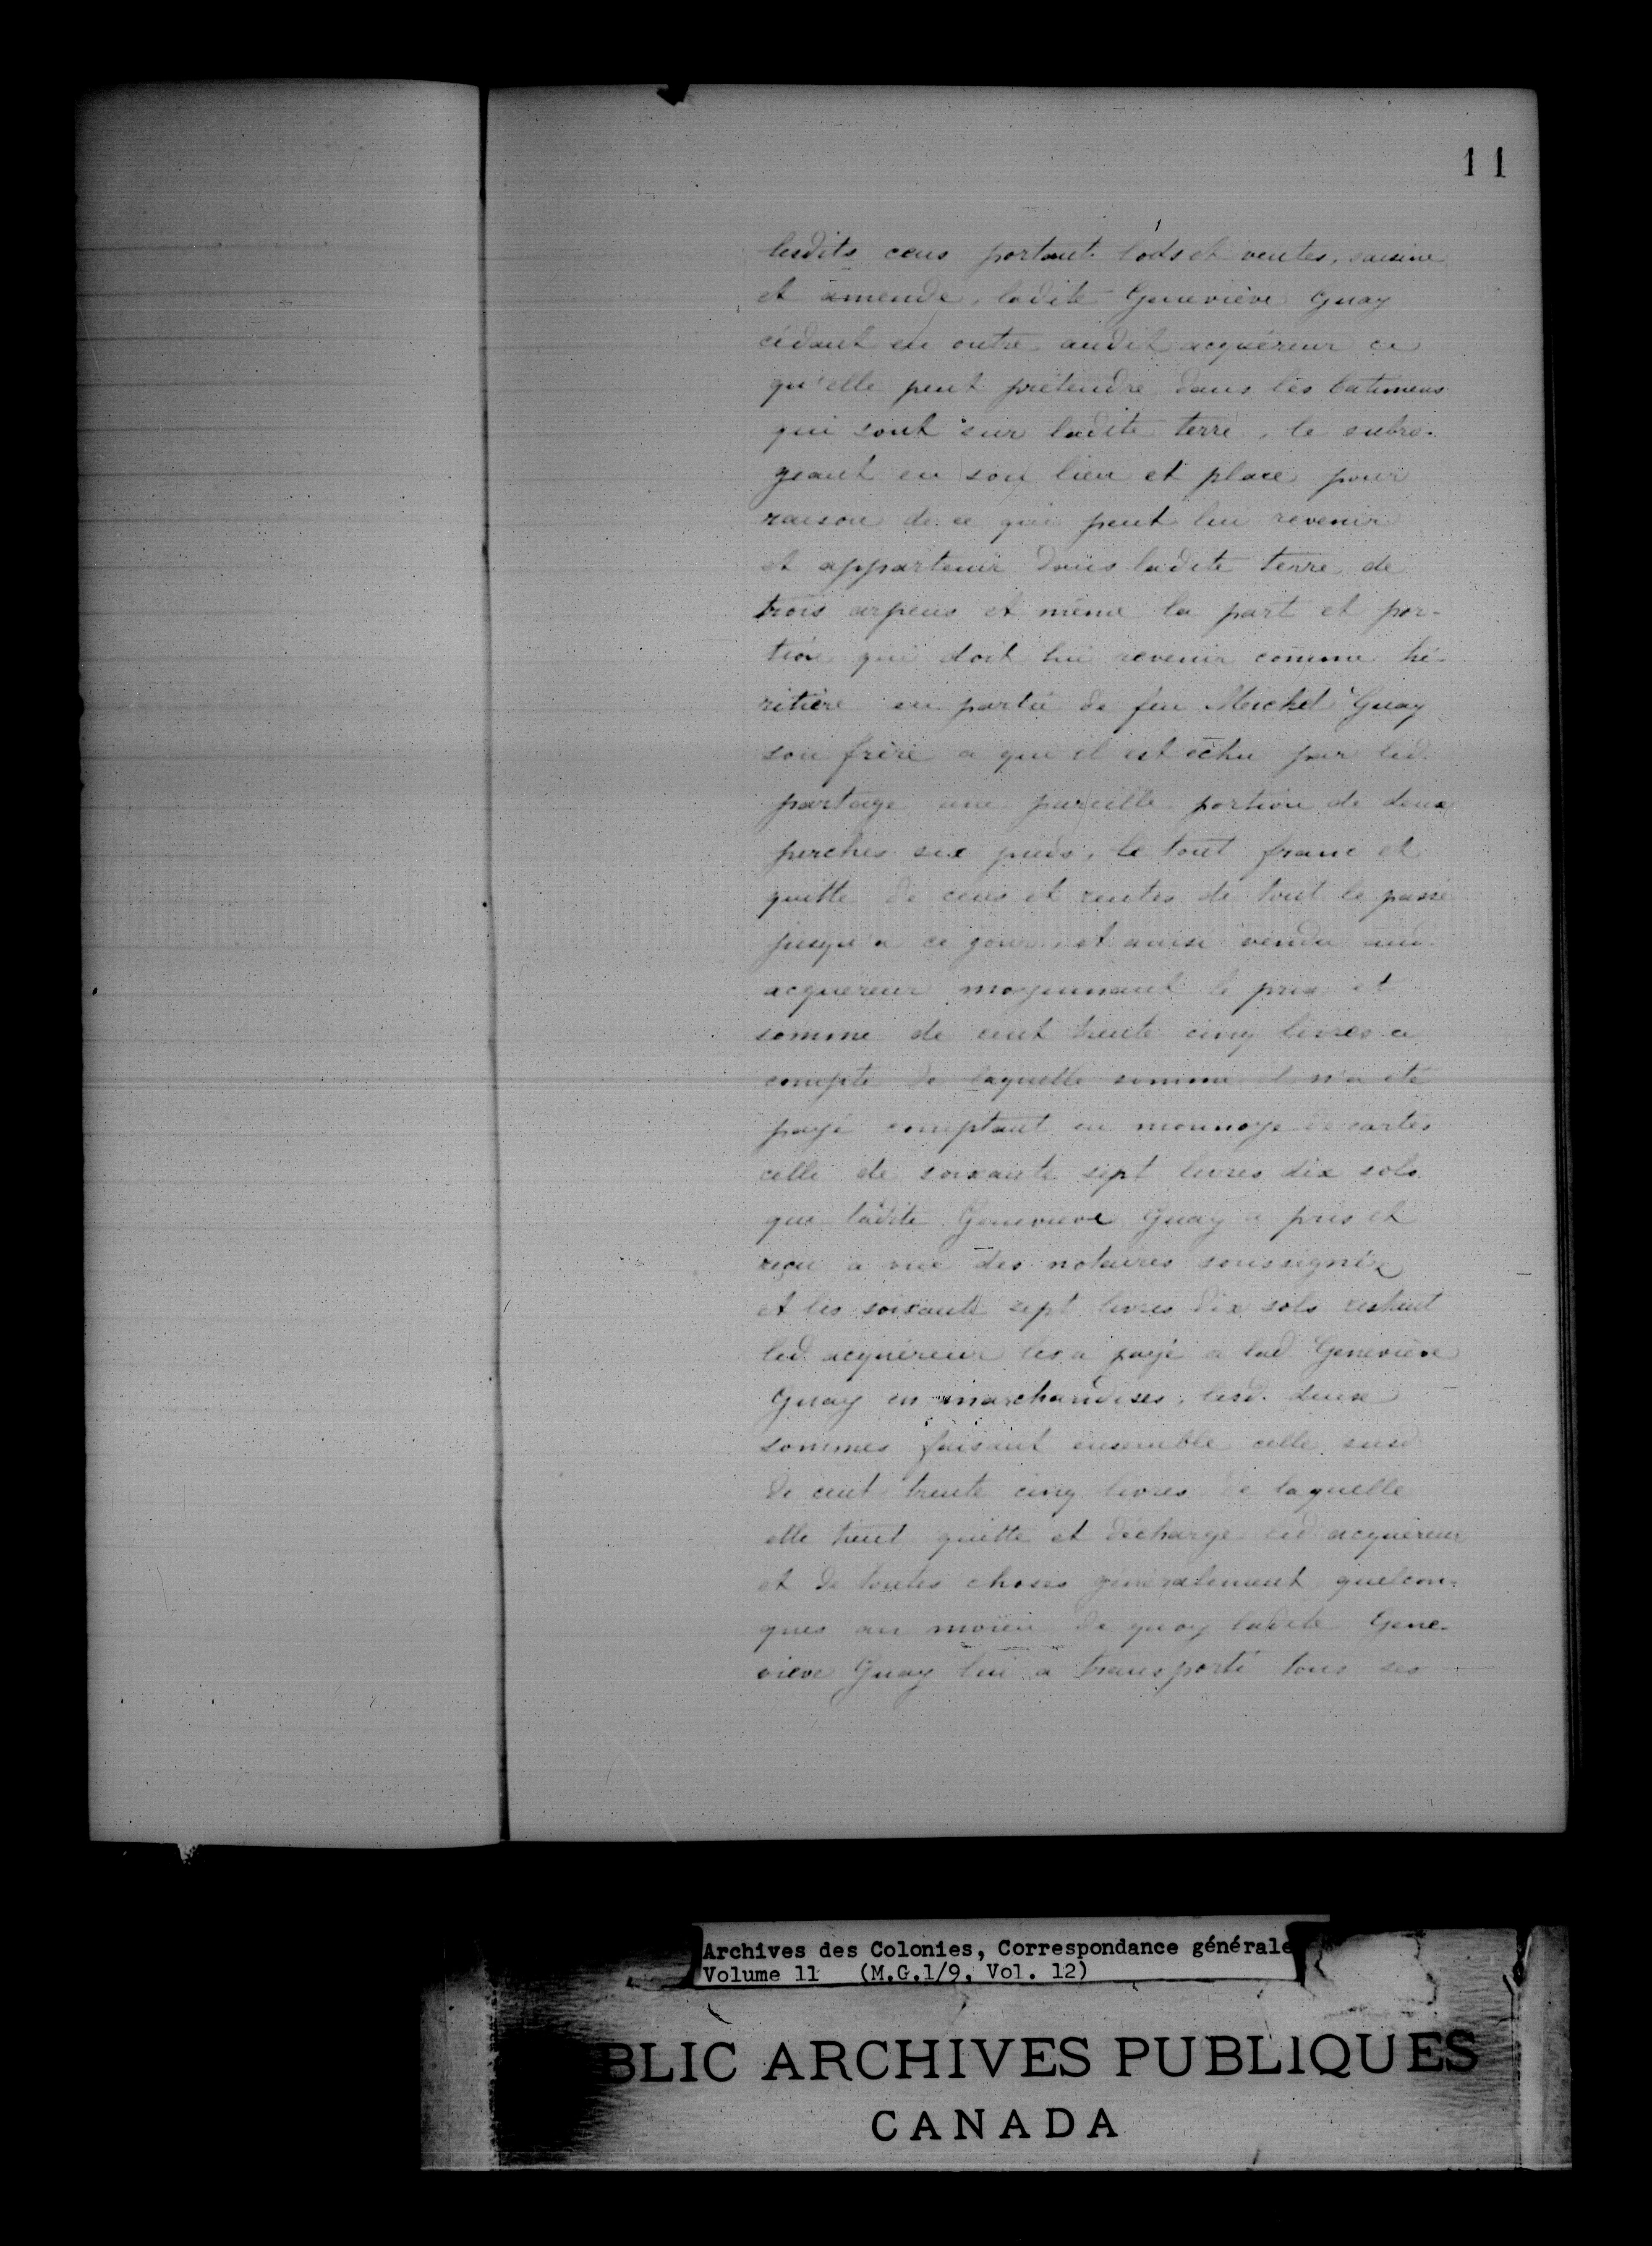 11
lesdits cens portant lods et ventes, saisine
et amende, ladite Geneviève Guay
cédant en outre audit acquéreur ce
qu'elle peut prétendre dans les batimens
qui sont sur ladite terre, le subro-
geant en son lieu et place pour
raison de ce qui peut lui revenir
et appartenir dans ladite terre de
trois arpens et même la part et por-
tion qui doit lui revenir comme hé-
ritière en partie de feu Meichel Guay
son frère a qui il est échu par led.
partage une pareille portion de deux
perches six pieds, le tout franc et
quitte de cens et rentes de tout le passé
jusqu'a ce jour, et ainsi vendu aud.
acquéreur moyennant le prix et
somme de cent trente cinq livres a
compte de laquelle somme il m'a été
payé comptant en monnoye de cartes
celle de soixante sept livres dix sols
que ladite Geneviève Guay a pris et
reçu a vue des notaires soussignéz
et les soixante sept livres dix sols restant
led. acquéreur les a payé a lad Geneviève
Guay en marchandises, lesd. deux
sommes faisant ensemble celle susd.
de cent trente cinq livres de laquelle
elle tient quitte et décharge led. acquéreur
et de toutes choses généralement quelcon-
ques au moien de quoy ladite Gene-
vieve Guay lui a transporté tous ses
Archives des Colonies, Correspondance générale
Volume 11 (M.G.1/9, Vol. 12)
BLIC ARCHIVES PUBLIQUES
CANADA